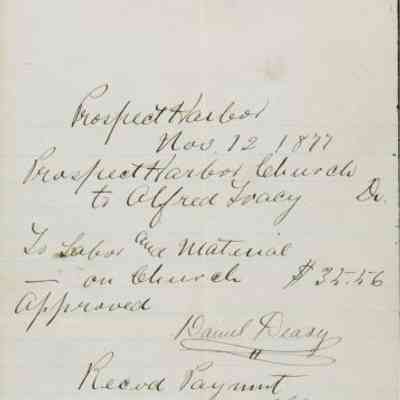 Prospect Harbor
Nov. 12 1877
Prospect Harbor Church
to Alfred Tracy Dr.
To Labor and Material
— on Church $ 35.56
Approved
Daniel Deasy
Recvd Paymnt